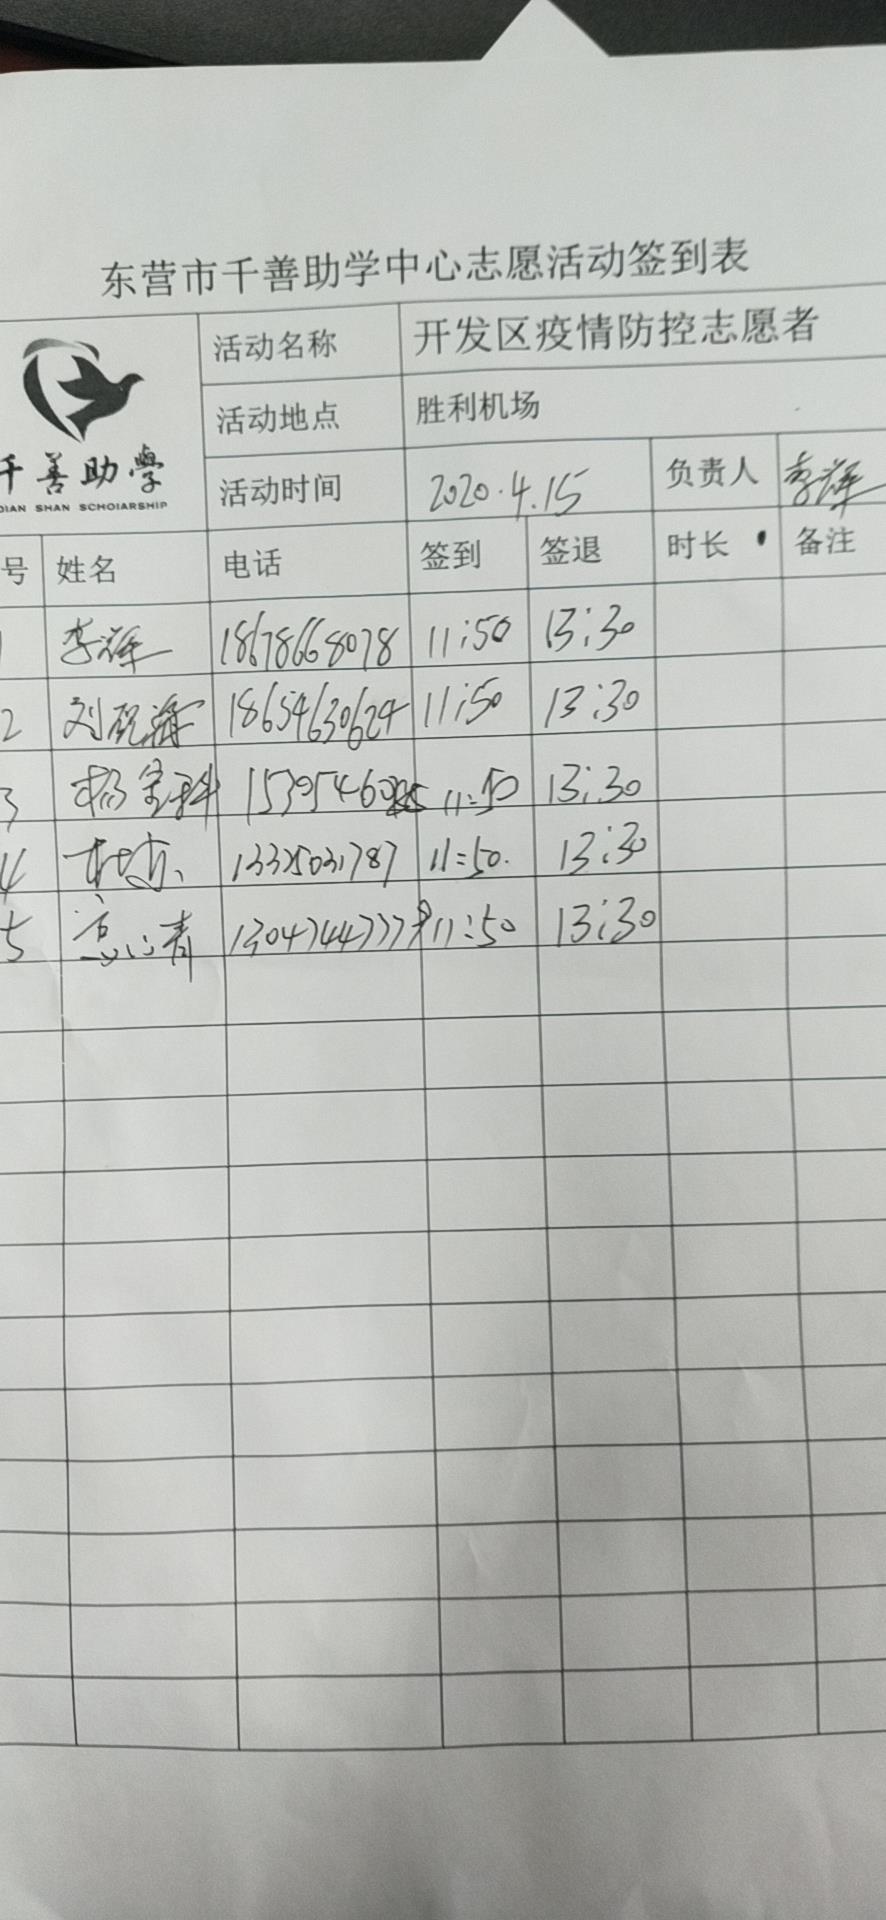 东营市千善助学中心志愿活动签到表
活动名称 开发区疫情防控志愿者
千善助学
DIAN SHAN SCHOIARSHIP
活动地点 胜利机场
活动时间 2020.4.15 负责人 李辉
号 姓名 电话 签到 签退 时长 备注
1 李辉 18678668078 11:50 13:30
2 刘 18654630624 11:50 13:30
3 杨宝科 11:50 13:30
4 13325031787 11:50. 13:30
5 高心青 11:50 13:30